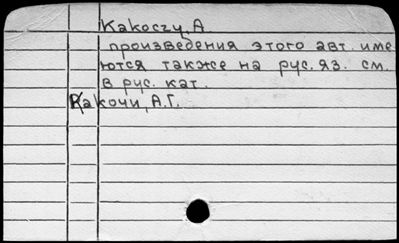 Kakoсzy, A.
произведения этого авт. име
ются также на рус. яз. см.
в рус. кат.
Какочи, А.Г.